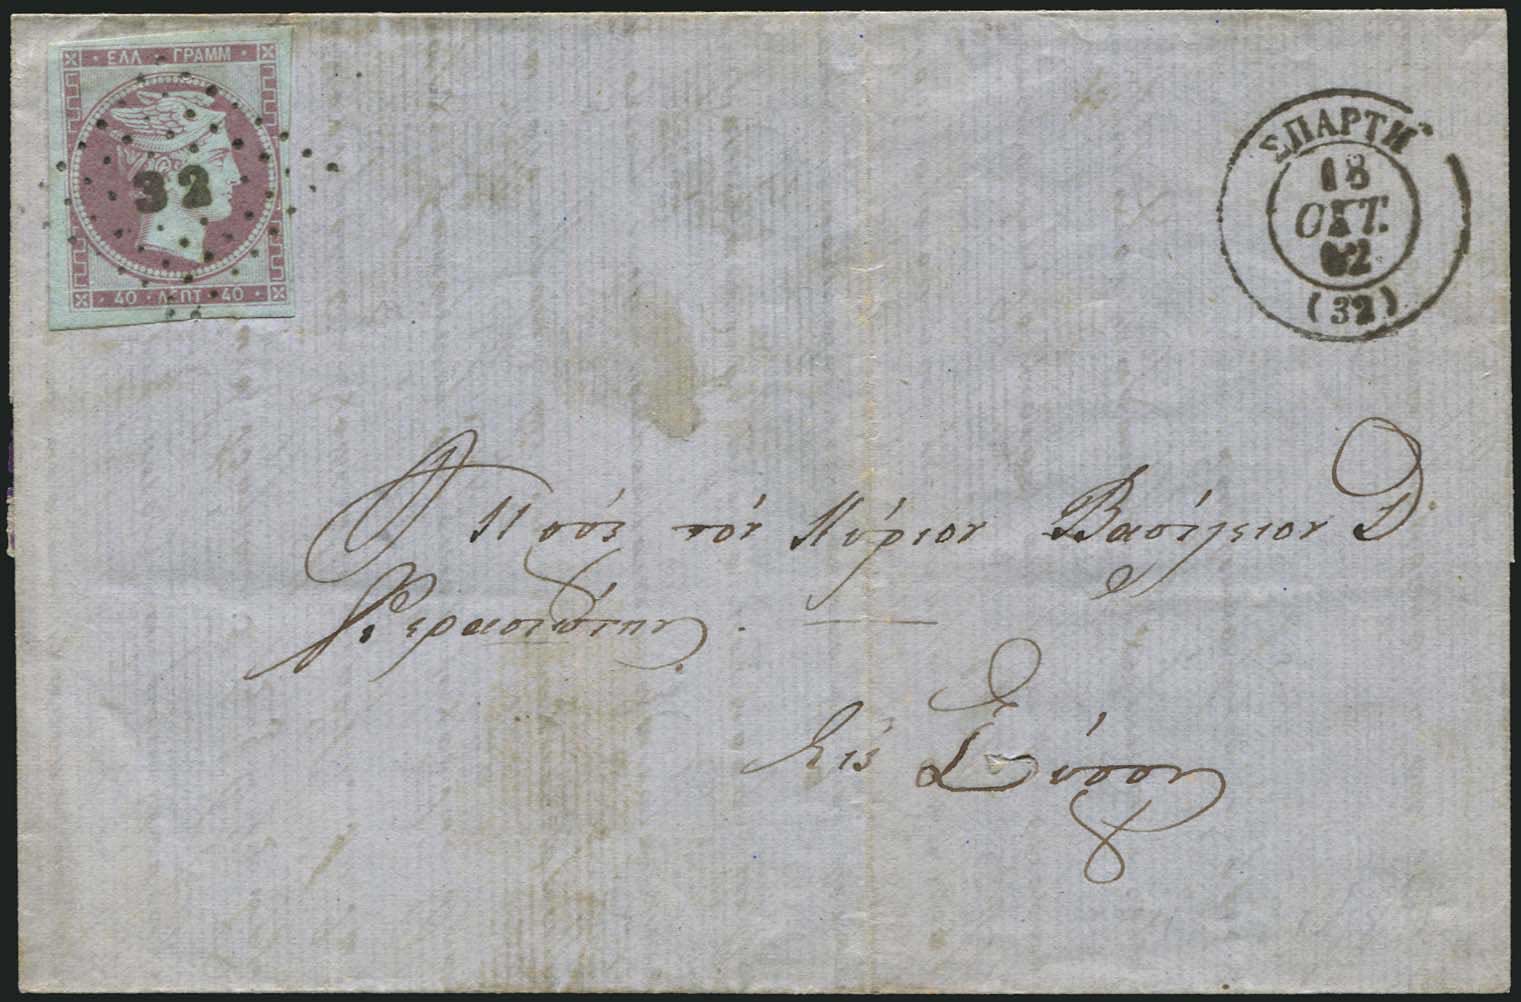 ΕΛΛ · ΓΡΑΜΜ
32
40 · ΛΕΠΤ · 40
ΣΠΑΡΤΗ
18
ΟΚΤ.
62
(32)
Πρός τόν Κύριον Βασίλειον Δ.
Κερασιώτην.
Εἰς Σύρον